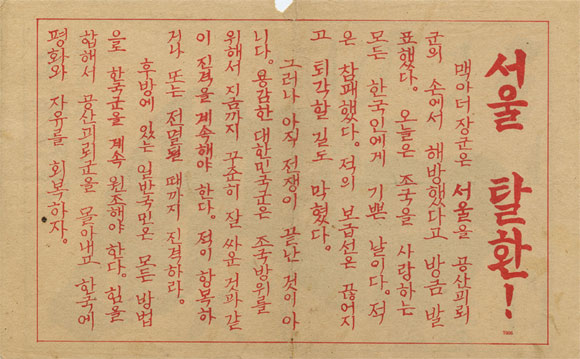 서울 탈환!
맥아더장군은 서울을 공산괴뢰
군의 손에서 해방했다고 방금 발
표했다. 오늘은 조국을 사랑하는
모든 한국인에게 기쁜 날이다. 적
은 참패했다. 적의 보급선은 끊어지
고 퇴각할 길도 막혔다.
그러나 아직 전쟁이 끝난 것이 아
니다. 용감한 대한민국군은 조국방위를
위해서 지금까지 꾸준히 잘 싸운 것과 같
이 진격을 계속해야 한다. 적이 항복하
거나 또는 전멸될 때까지 진격하라.
후방에 있는 일반국민은 모든 방법
으로 한국군을 계속 원조해야 한다. 힘을
합해서 공산괴뢰군을 몰아내고 한국에
평화와 자유를 회복하자.